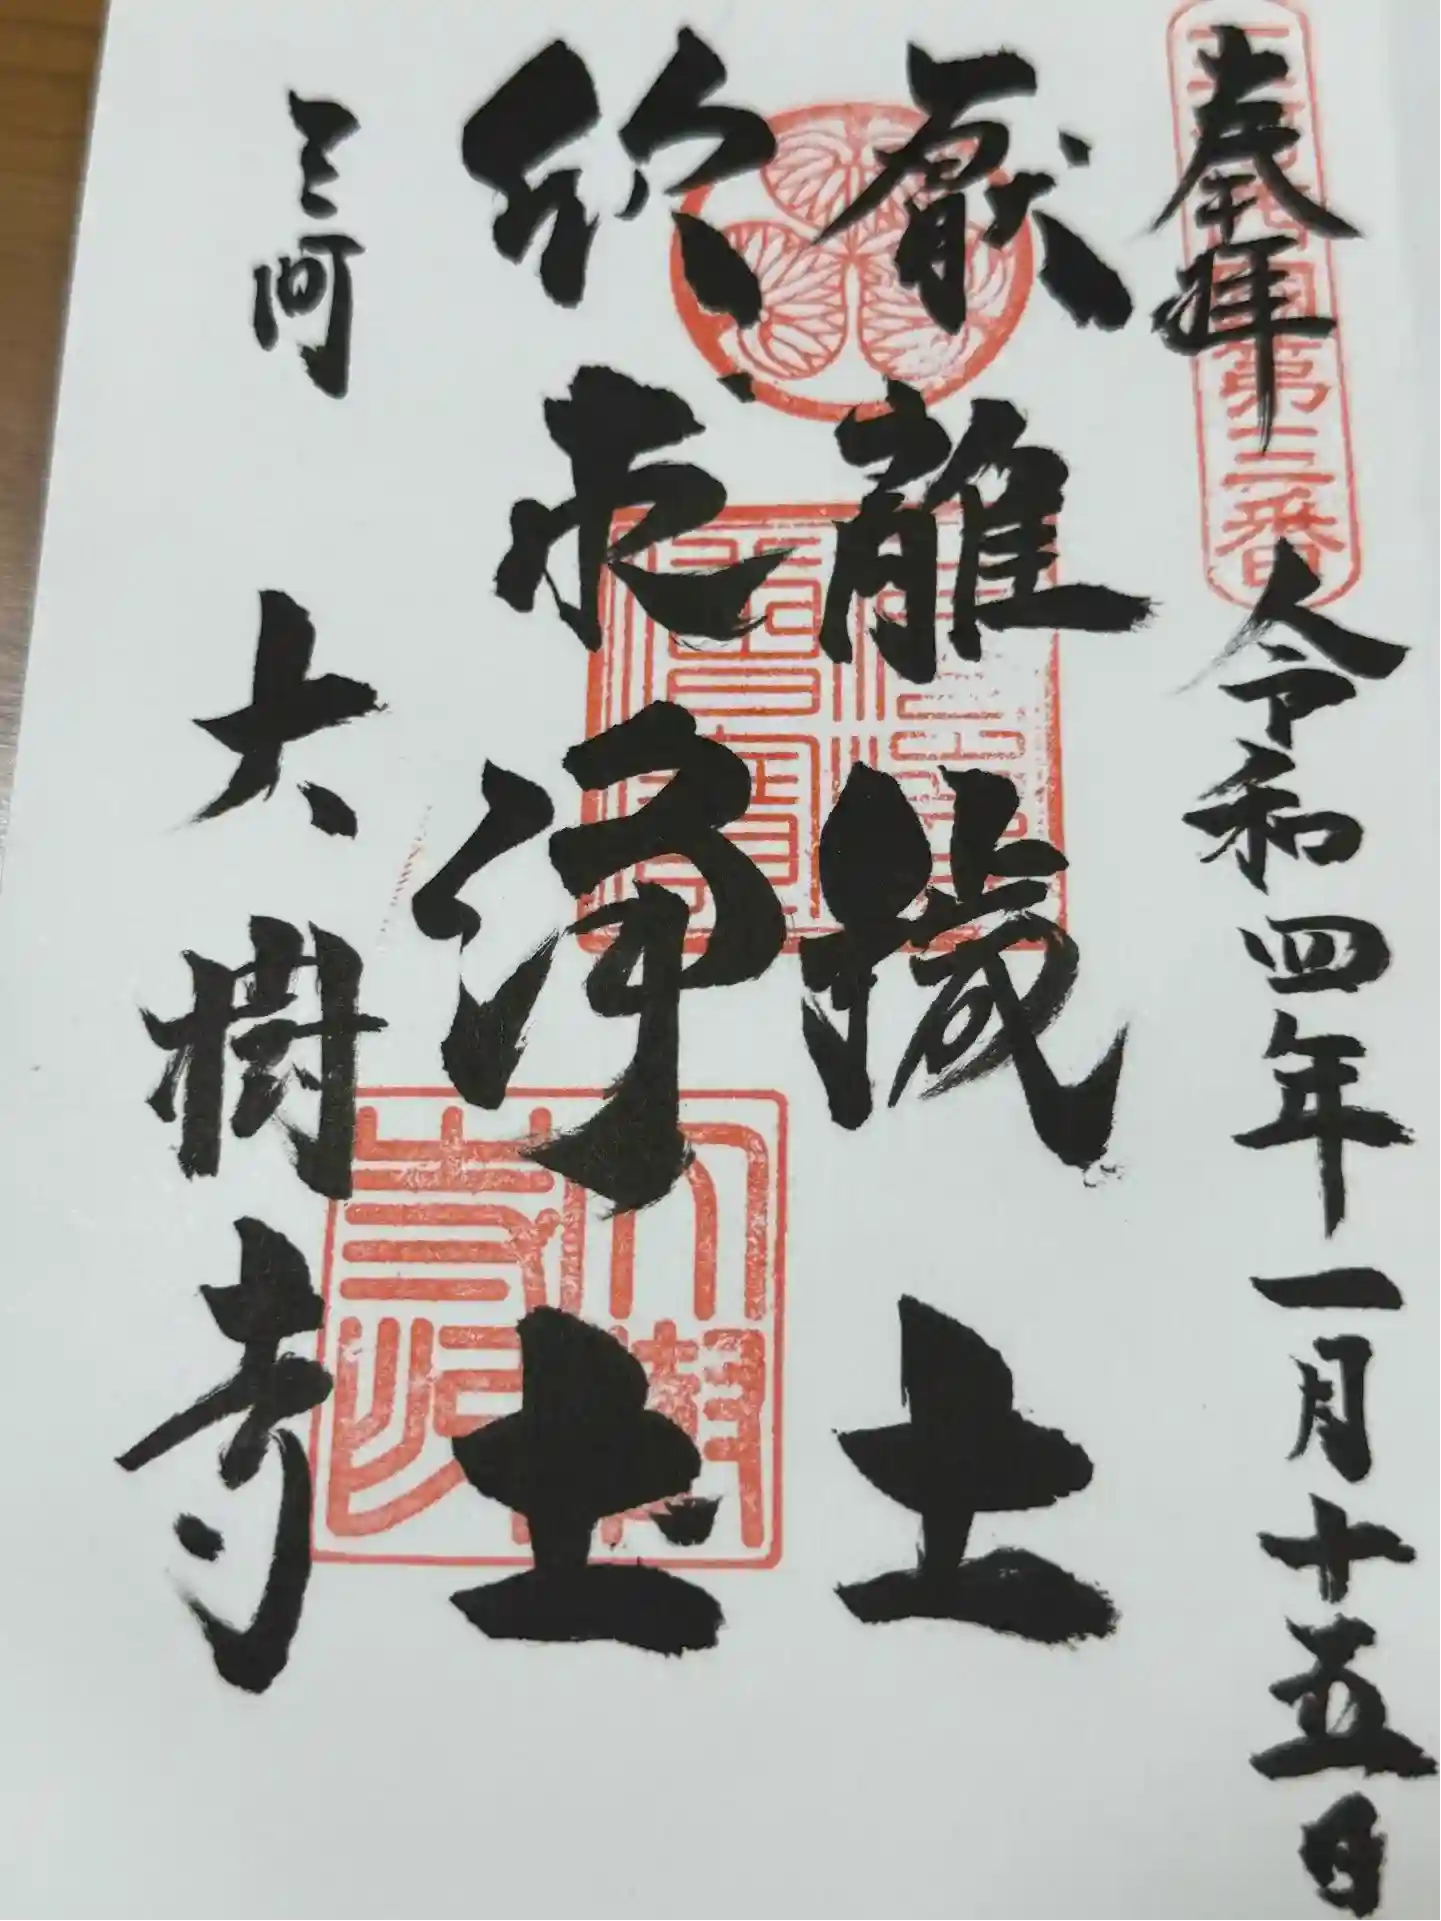 奉拝
令和四年一月十五日
第三番
厭離穢土
欣求浄土
三河
大樹寺